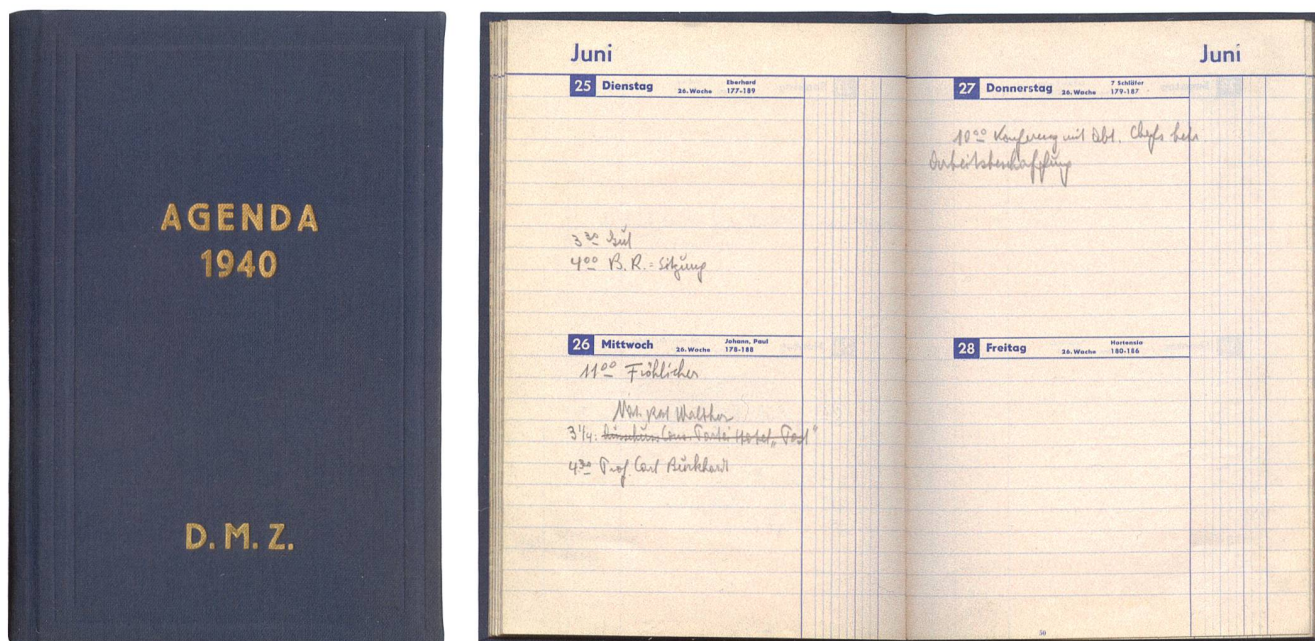 AGENDA
1940
D. M. Z.
Juni
25 Dienstag 26. Woche Eberhard 177-189
3 30
4 00 B. R. = Sitzung
26 Mittwoch 26. Woche Johann, Paul 178-188
11 00 Fröhlicher
Nat. rat Walther
3 1/4: Hotel „Post"
4 30 Prof. Carl Burkhardt
Juni
27 Donnerstag 26. Woche 7 Schläfer 179-187
10 00 Konferenz mit Abt. Chefs betr
Arbeitsbeschaffung
28 Freitag 26. Woche Hortensia 180-186
50